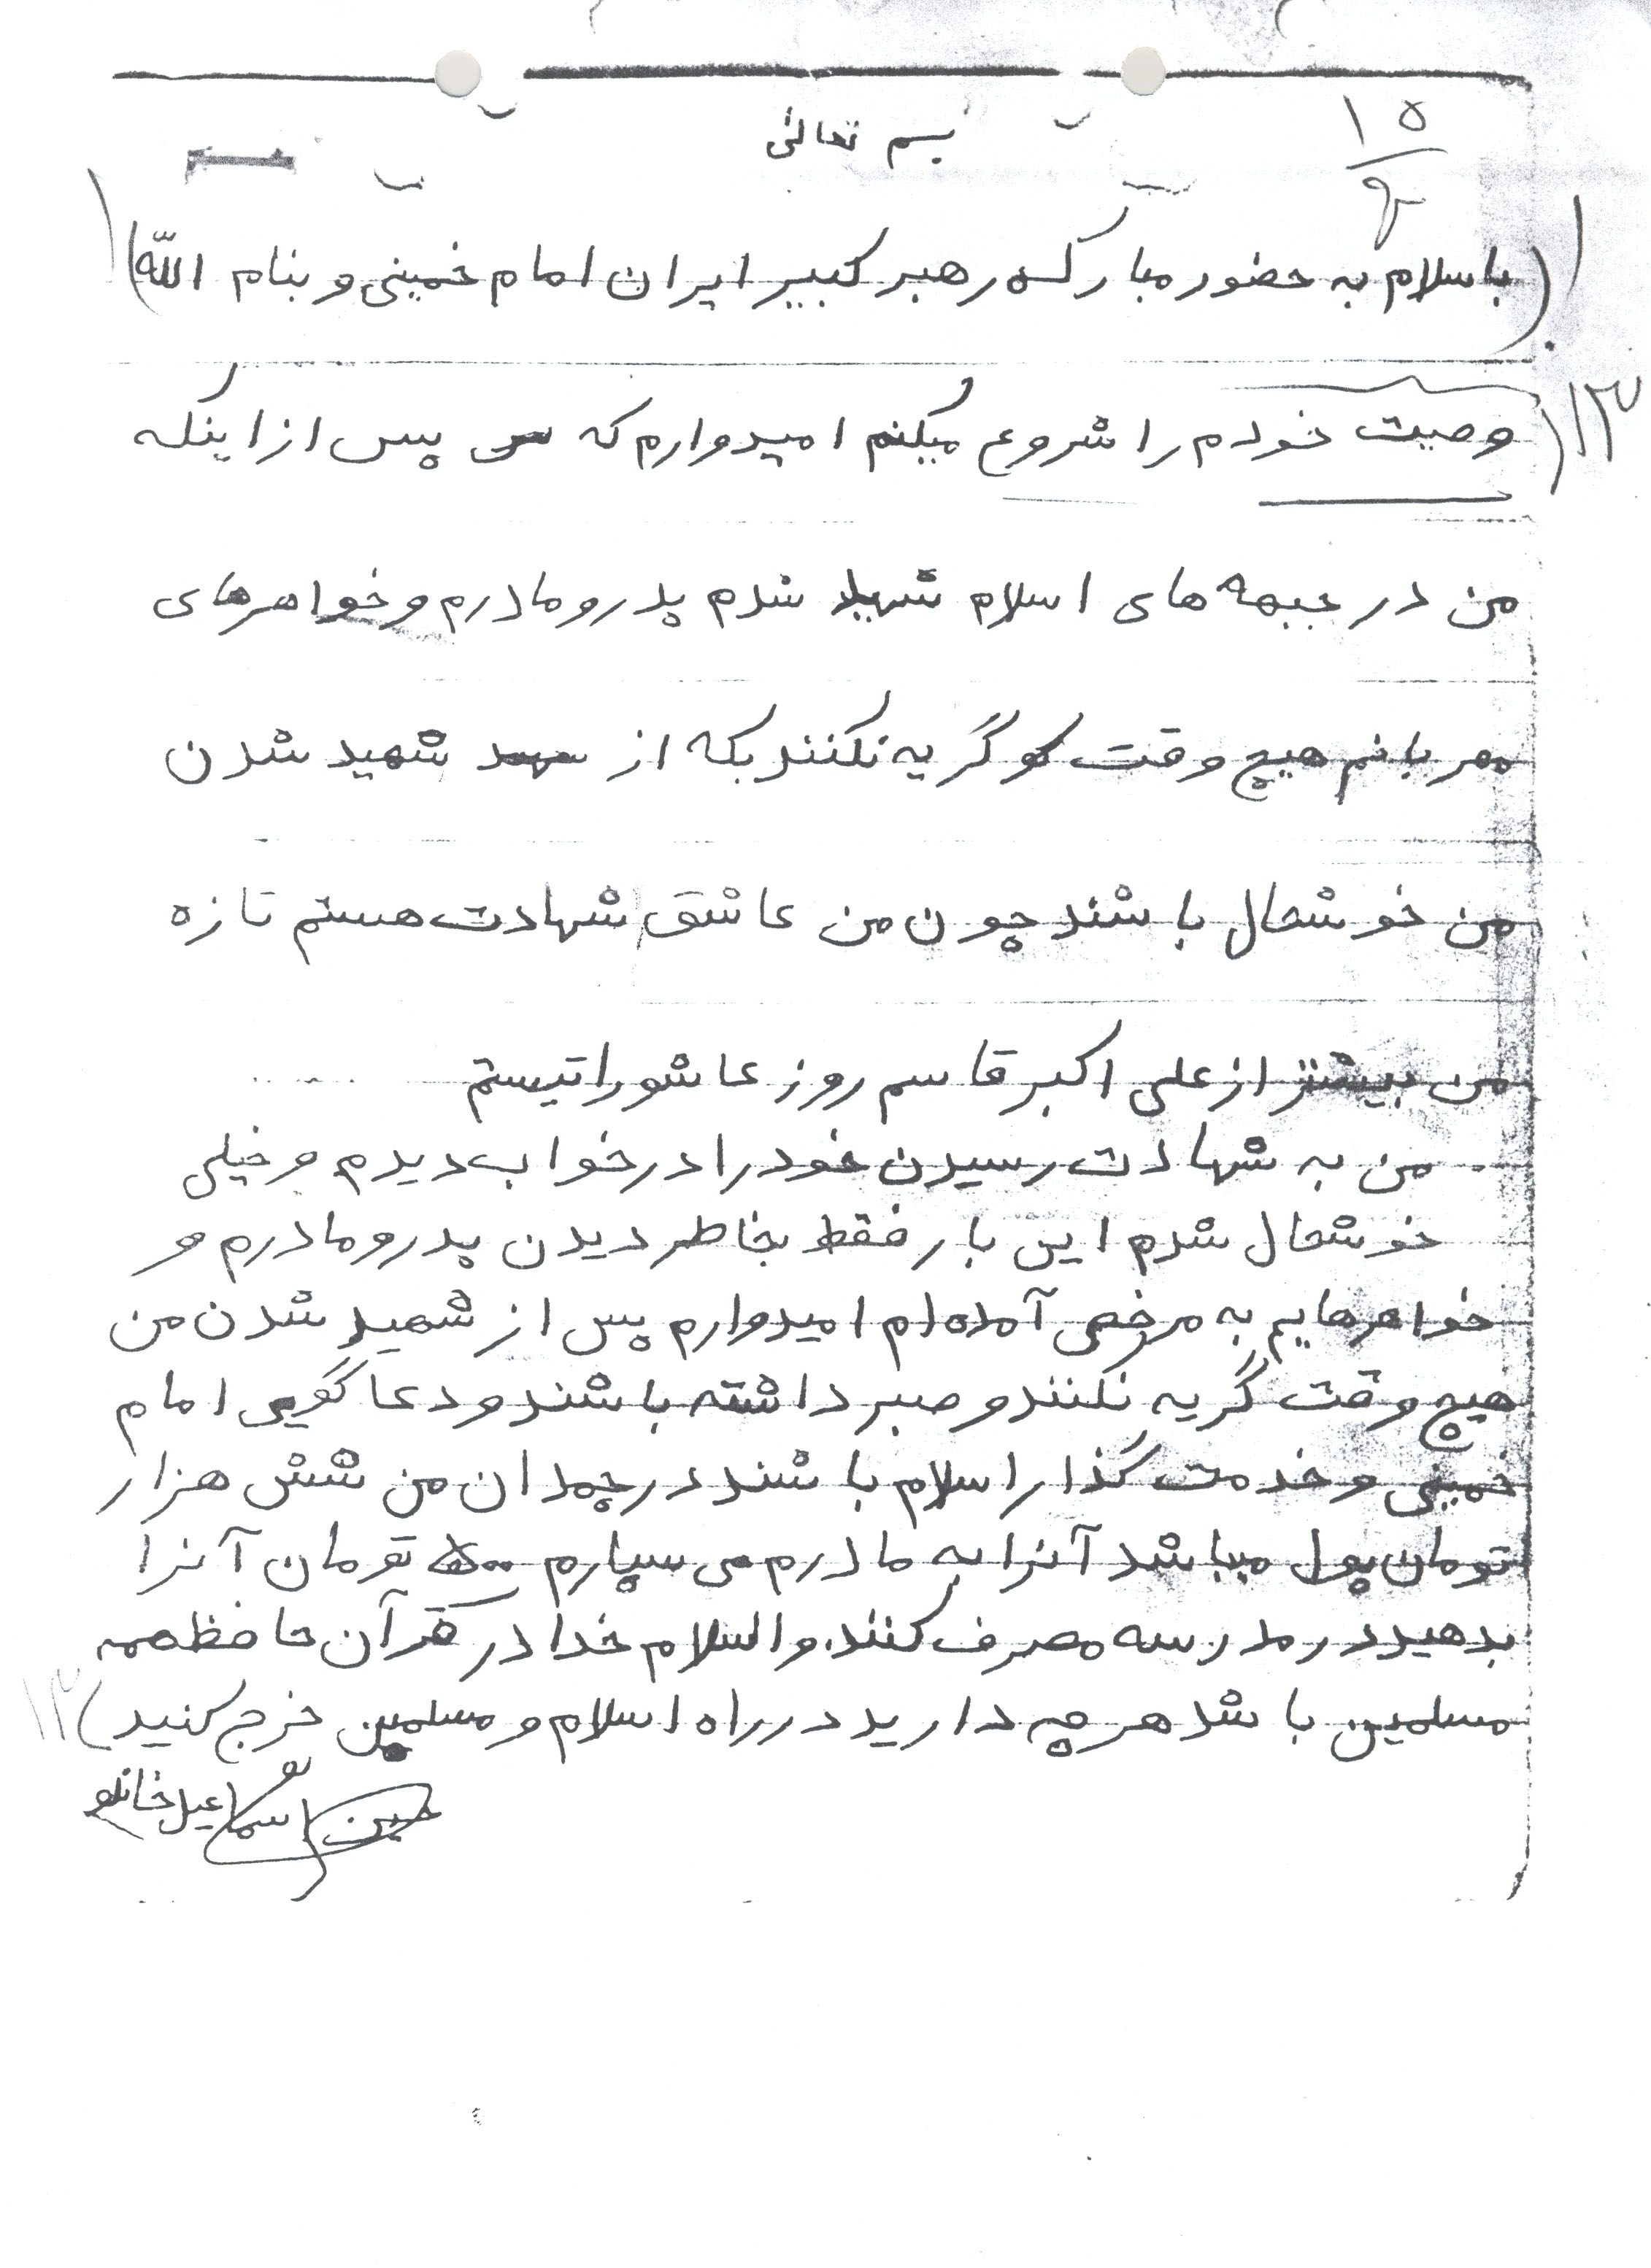 بسم تعالی
۱۵
(باسلام به حضور مبارک رهبر کبیر ایران امام خمینی و بنام الله)
۱۳
وصیت خودم را شروع میکنم امیدوارم که پس از اینکه
من در جبهه های اسلام شهید شدم پدر و مادرم و خواهرهای
مهربانم هیچ وقت گریه نکنند بکه از شهید شدن
من خوشحال باشند چون من عاشق شهادت هستم تازه
من بیشتر از علی اکبر قاسم روز عاشورا نیستم
من به شهادت رسیدن خود را در خواب دیدم و خیلی
خوشحال شدم این بار فقط بخاطر دیدن پدر و مادرم و
خواهرهایم به مرخصی آمده ام امیدوارم پس از شهید شدن من
هیچ وقت گریه نکنند و صبر داشته باشند و دعا گویی امام
خمینی و خدمت گذار اسلام باشند در چمدان من شش هزار
تومان پول میباشد آنرا به مادرم می سپارم ۵۰۰ تومان آنرا
بدهید در مدرسه مصرف کنند. والسلام خدا در قرآن حافظ همه
مسلمین باشد هر چه دارید در راه اسلام و مسلمین خرج کنید)
۱۳
حسین اسماعیل خانلو